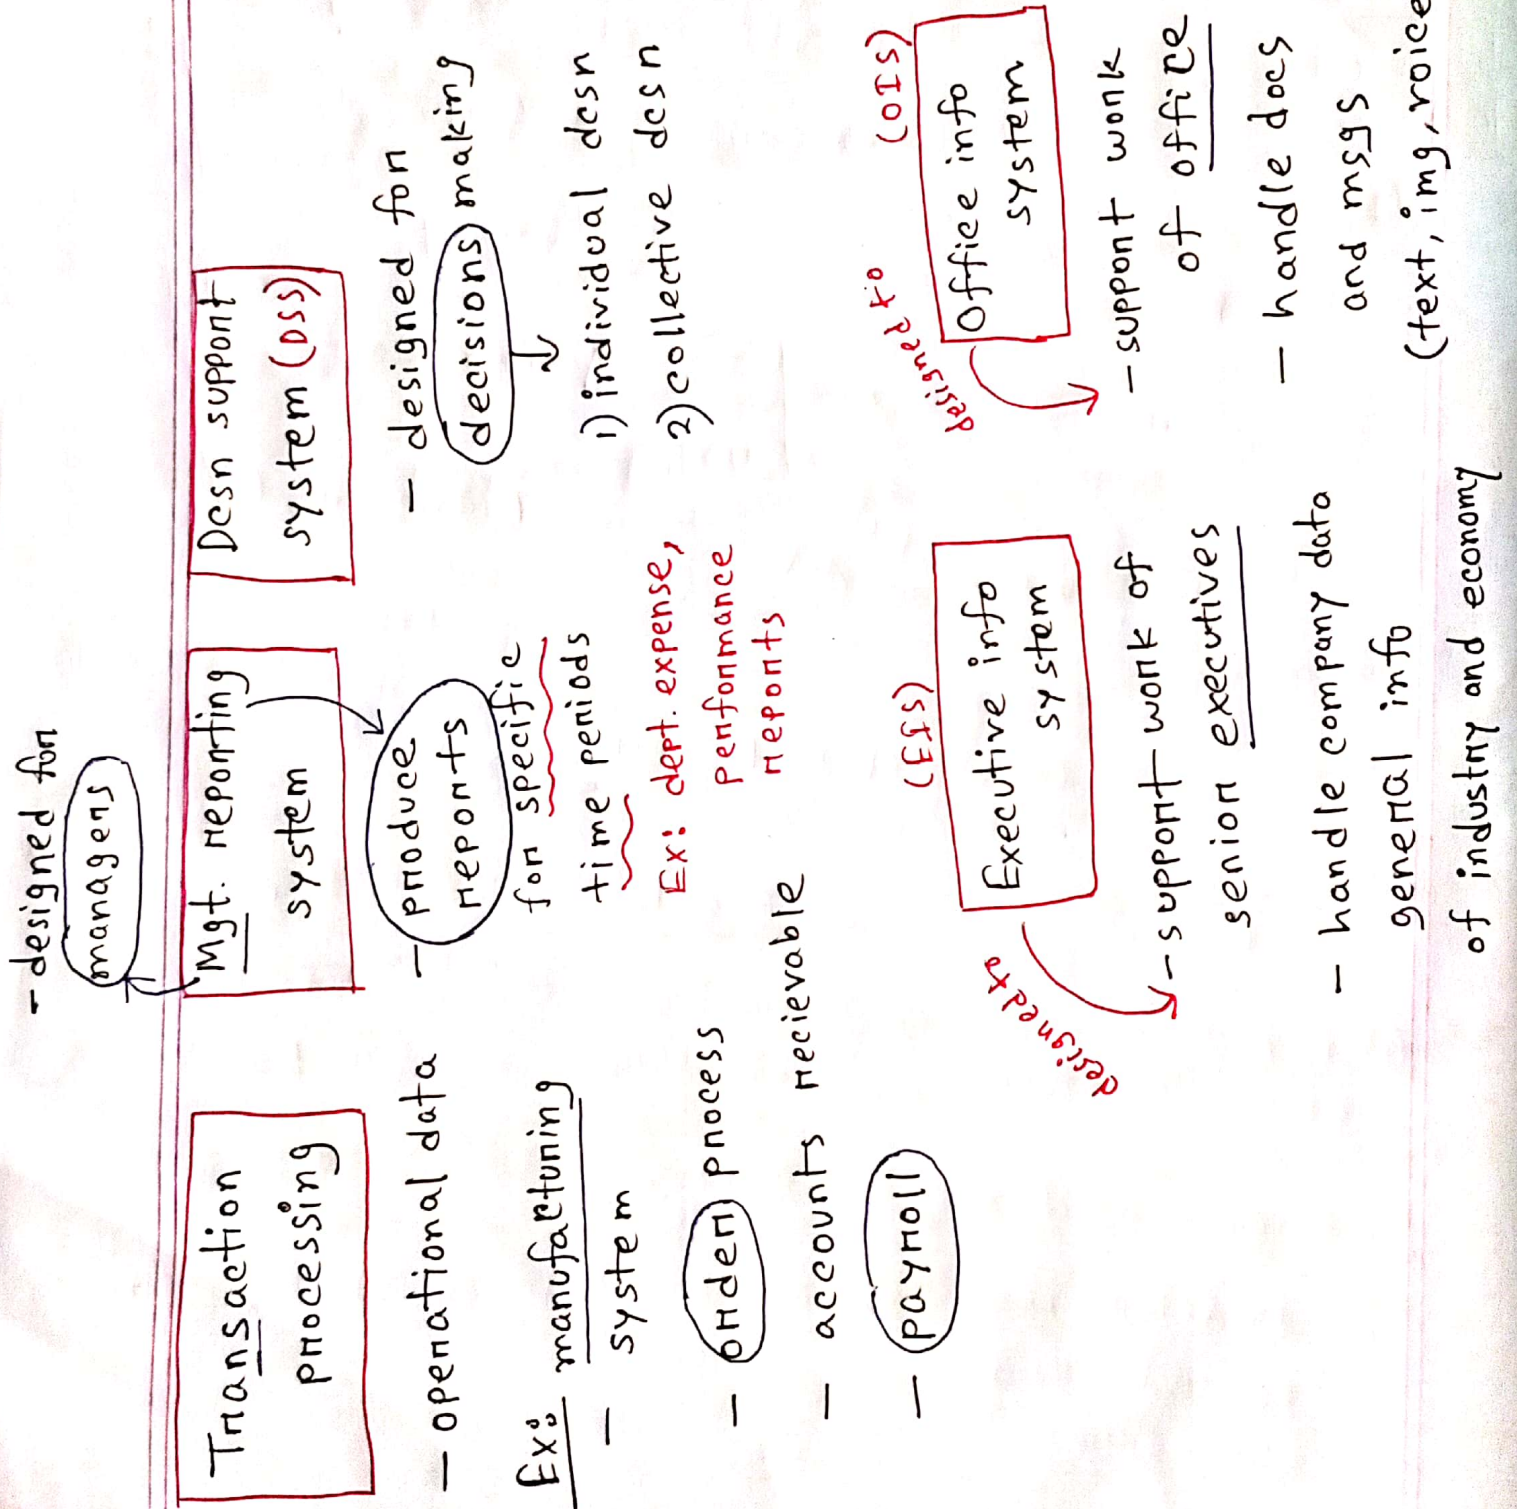 Transaction
processing
- operational data
Ex: manufacturing
- system
- order process
- accounts recievable
- payroll
- designed for
managers
Mgt. reporting
system
- produce
reports
for specific
time periods
Ex: dept. expense,
performance
reports
Dcsn support
system (DSS)
- designed for
decisions making
1) individual dcsn
2) collective dcsn
(EIS)
Executive info
system
designed to
- support work of
senior executives
- handle company data
general info
of industry and economy
(OIS)
Office info
system
designed to
- support work
of office
- handle docs
and msgs
(text, img, voice